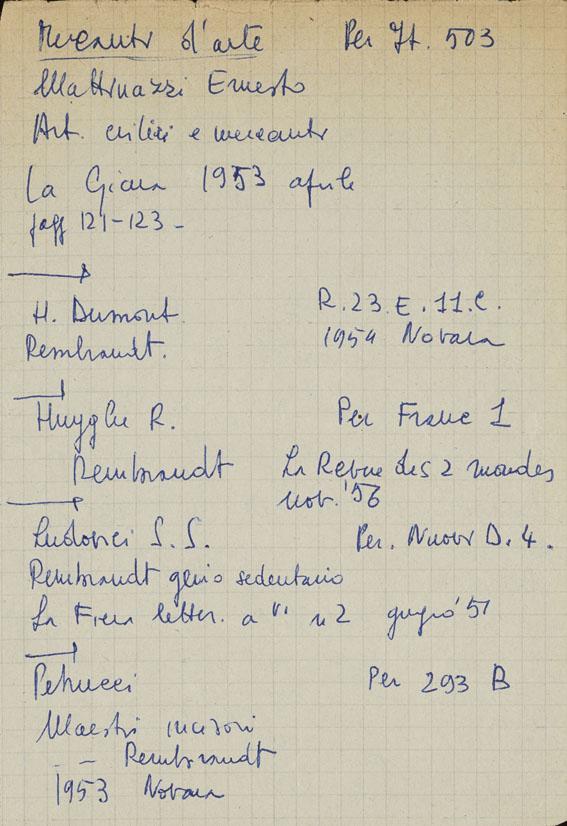 Mercanti d'arte Per It. 503
Mattinazzi Ernesto
Art. critici e mercanti
La Giara 1953 aprile
pagg 121-123 -
H. Dumont R.23.E.11.C.
Rembrandt. 1954 Novara
Huyghe R. Per Franc 1
Rembrandt La Revue des 2 mondes
nov. '56
Ludovici S.S. Per. Nuovi D.4.
Rembrandt genio sedentario
La Fiera letter. a VI n 2 '51
Petrucci Per 293 B
Maestri incisori
- - Rembrandt
1953 Novara